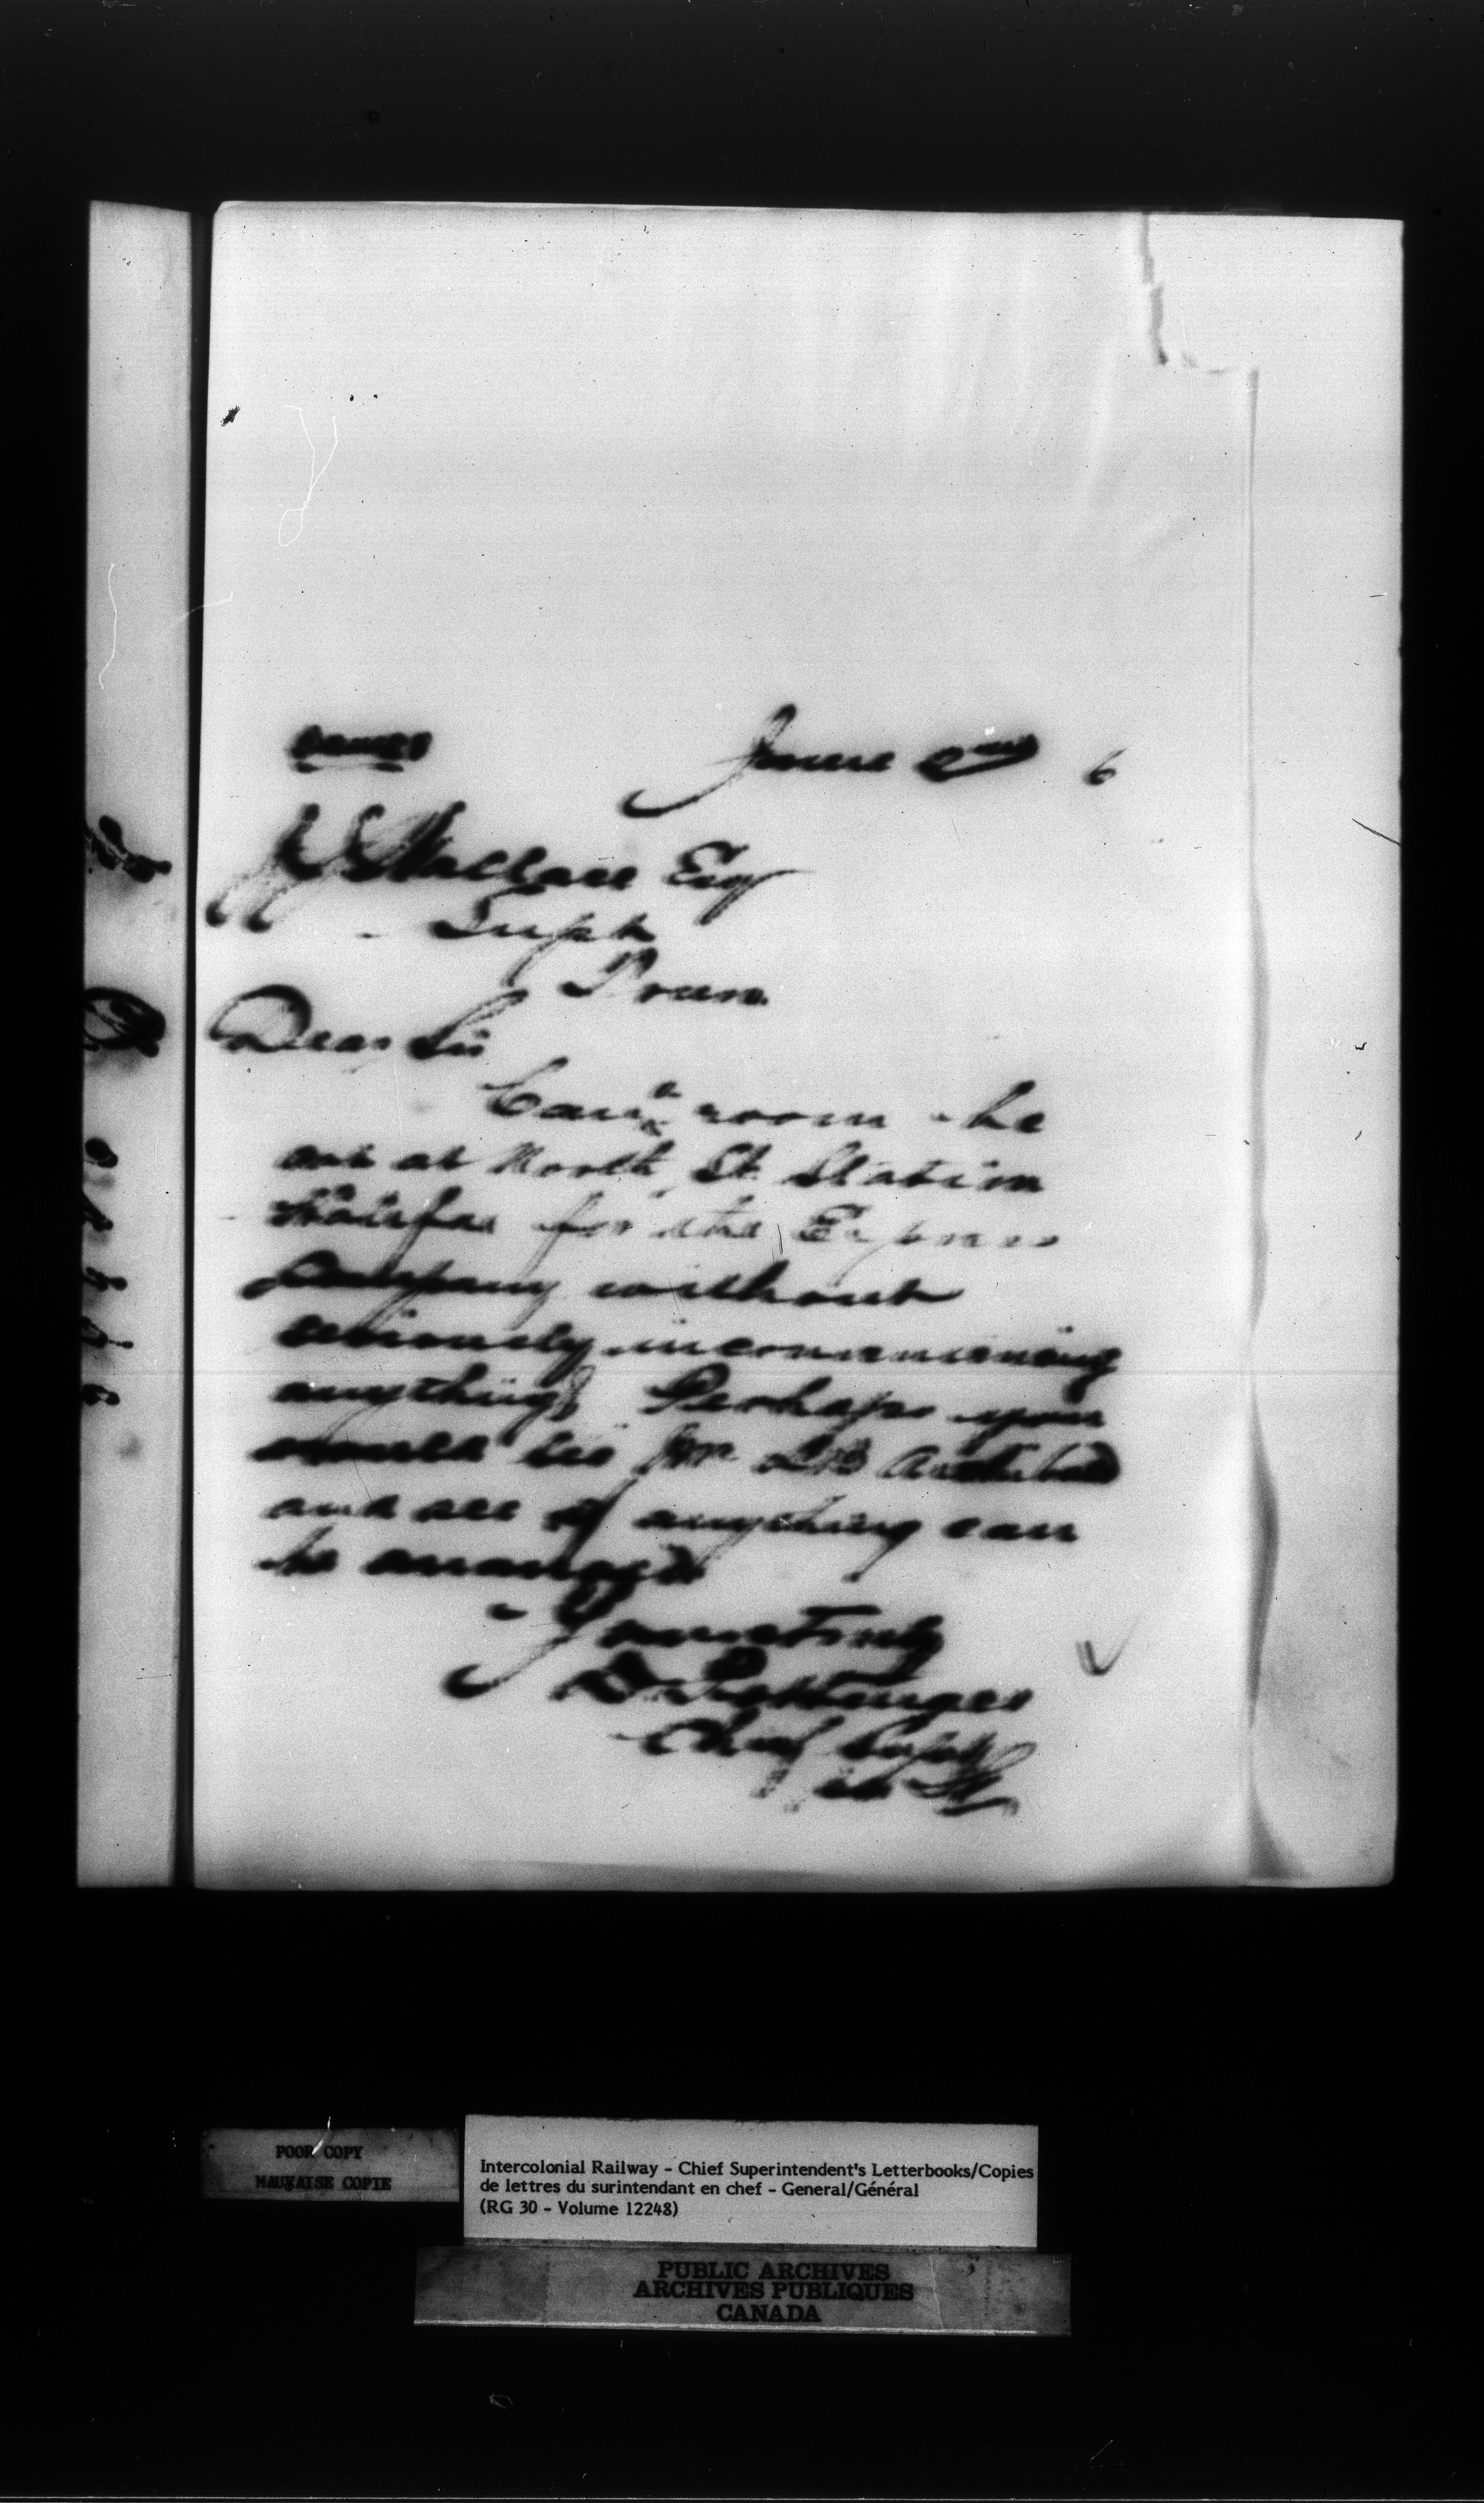 June 2nd 6
J J Wallace Esq
Supt
Truro
Dear Sir
Can't room be
at North St. Station
Halifax for the Express
Company without
seriously inconveniencing
anything? Perhaps you
would see Mr Archibald
and see if anything can
be arranged
Yours truly
D. Pottinger
Chief Supt
POOR COPY
MAUVAISE COPIE
Intercolonial Railway - Chief Superintendent's Letterbooks/Copies
de lettres du surintendant en chef - General/Général
(RG 30 - Volume 12248)
PUBLIC ARCHIVES
ARCHIVES PUBLIQUES
CANADA